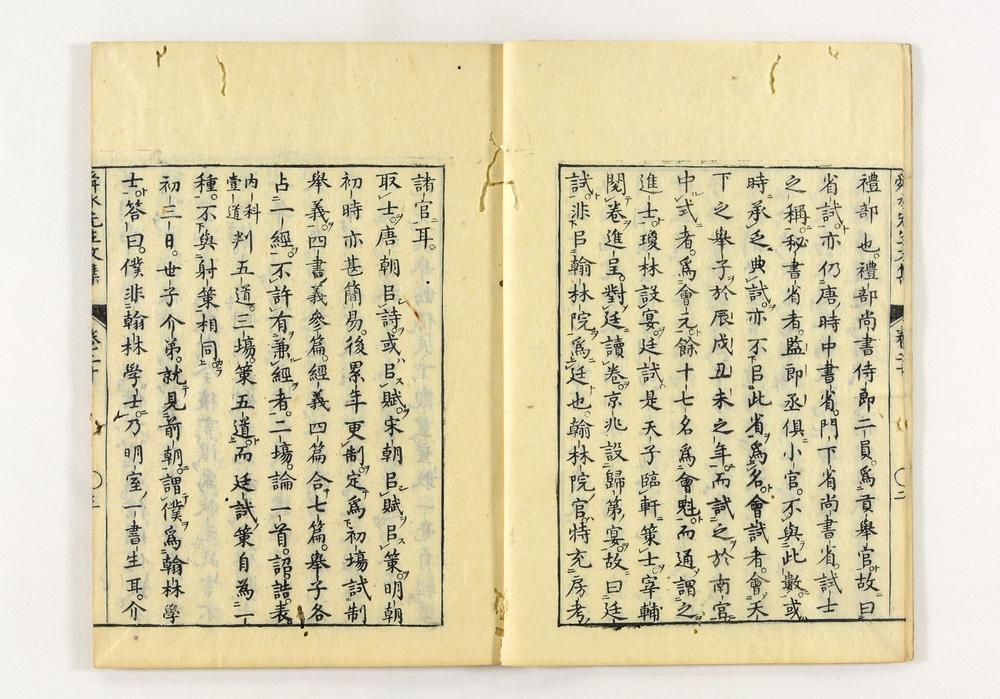 禮部也。禮部尚書侍郎二員。爲貢舉官。故曰
省試。亦仍唐時中書省。門下省尚書省。試士
之稱。秘書省者。監即丞俱小官。不與此數。或
時承之典試。亦不㠯此省爲名。會試者。會天
下之舉子於辰戌丑未之年。而試之於南宮
中式者。爲會元。餘十七名爲會魁。而通謂之
進士。瓊林設宴。廷試是天子臨軒策士。宰輔
閱卷進呈。對廷讀卷。京兆設歸第宴。故曰廷
試。非㠯翰林院爲廷也。翰林院官特充房考
諸官耳。
取士唐朝㠯詩。或㠯賦。宋朝㠯賦㠯策。明朝
初時亦甚簡易。後累年更制。定爲初場試制
舉義。四書義參篇。經義四篇。合七篇。舉子各
占一經。不許有兼經者。二場。論一首。詔誥表。
內科壹道判五道。三場。策五道。而廷試策自為一
種。不與射策相同。
初三日。世子介弟。就見前朝。謂僕爲翰林學
士。答曰。僕非翰林學士。乃明室一書生耳。介